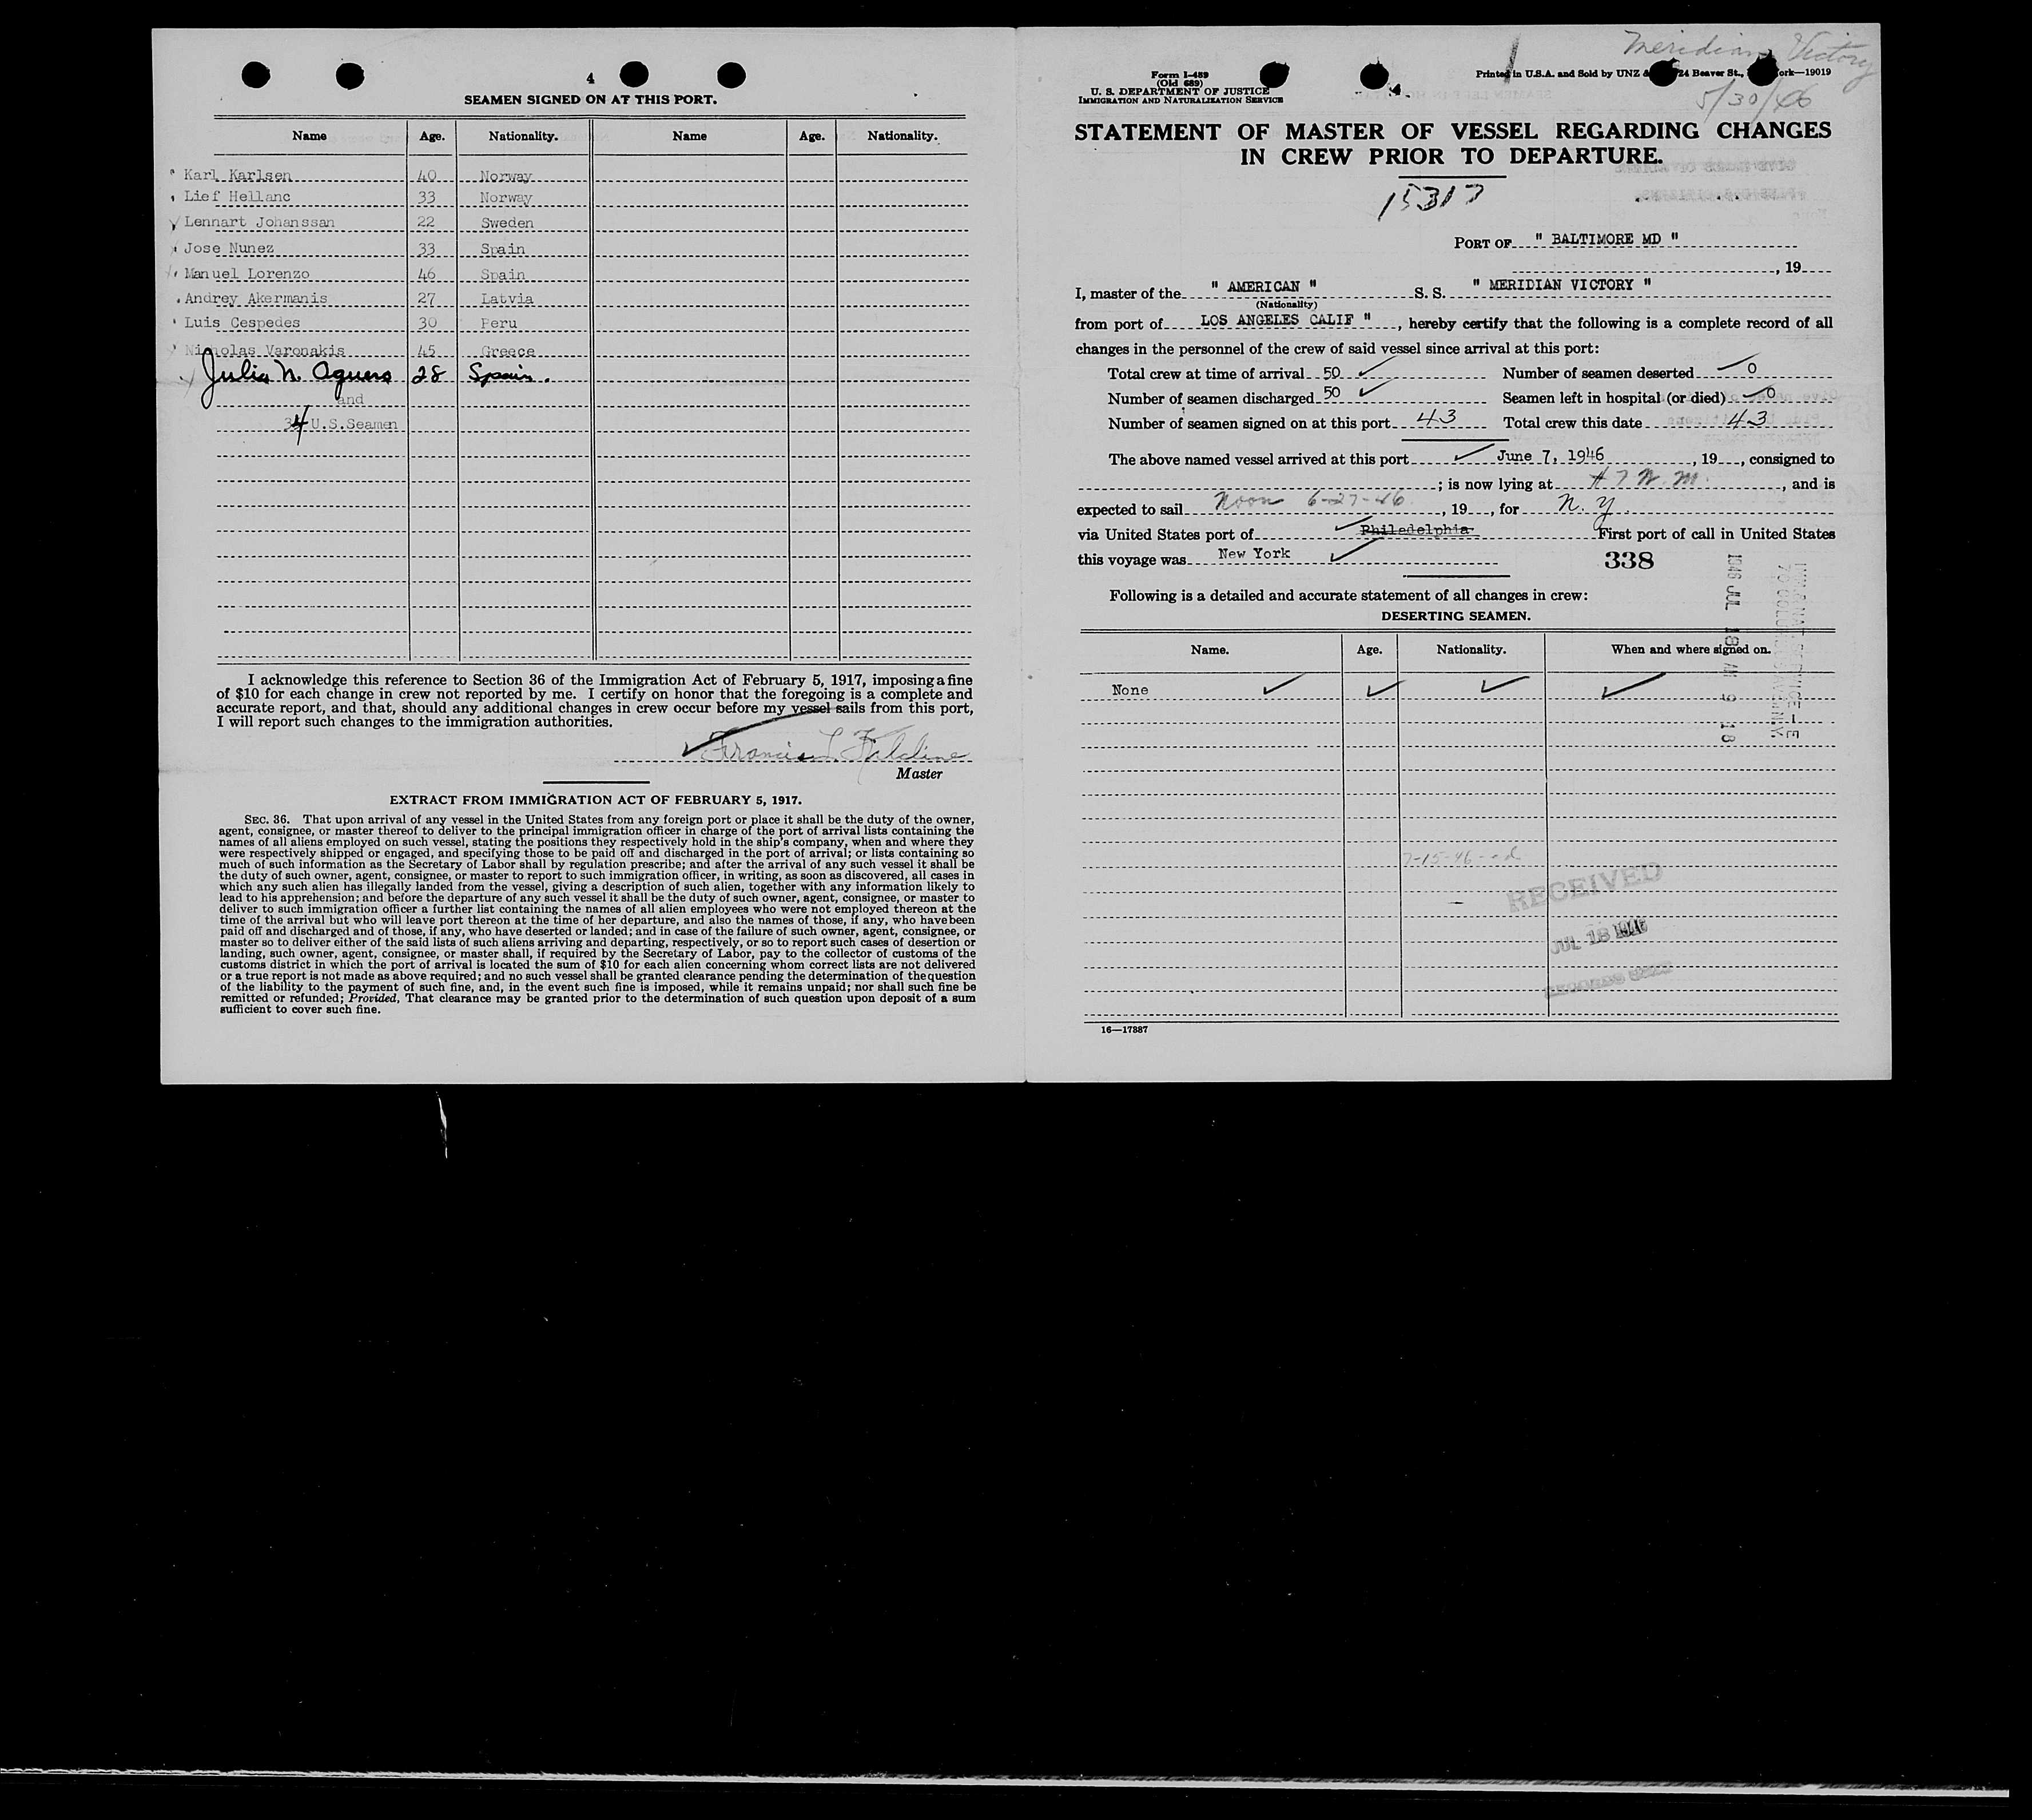 4
SEAMEN SIGNED ON AT THIS PORT.
Name Age. Nationality. Name Age. Nationality.
Karl Karlsen 40 Norway
Lief Hellanc 33 Norway
Lennart Johanssan 22 Sweden
Jose Nunez 33 Spain
Manuel Lorenzo 46 Spain
Andrey Akermanis 27 Latvia
Luis Cespedes 30 Peru
Nicholas Varonakis 45 Greece
Julia N. Aguero 28 Spain.
and
34 U.S.Seamen
I acknowledge this reference to Section 36 of the Immigration Act of February 5, 1917, imposing a fine
of $10 for each change in crew not reported by me. I certify on honor that the foregoing is a complete and
accurate report, and that, should any additional changes in crew occur before my vessel sails from this port,
I will report such changes to the immigration authorities.
Francis L.
Master
EXTRACT FROM IMMIGRATION ACT OF FEBRUARY 5, 1917.
SEC. 36. That upon arrival of any vessel in the United States from any foreign port or place it shall be the duty of the owner,
agent, consignee, or master thereof to deliver to the principal immigration officer in charge of the port of arrival lists containing the
names of all aliens employed on such vessel, stating the positions they respectively hold in the ship's company, when and where they
were respectively shipped or engaged, and specifying those to be paid off and discharged in the port of arrival; or lists containing so
much of such information as the Secretary of Labor shall by regulation prescribe; and after the arrival of any such vessel it shall be
the duty of such owner, agent, consignee, or master to report to such immigration officer, in writing, as soon as discovered, all cases in
which any such alien has illegally landed from the vessel, giving a description of such alien, together with any information likely to
lead to his apprehension; and before the departure of any such vessel it shall be the duty of such owner, agent, consignee, or master to
deliver to such immigration officer a further list containing the names of all alien employees who were not employed thereon at the
time of the arrival but who will leave port thereon at the time of her departure, and also the names of those, if any, who have been
paid off and discharged and of those, if any, who have deserted or landed; and in case of the failure of such owner, agent, consignee, or
master so to deliver either of the said lists of such aliens arriving and departing, respectively, or so to report such cases of desertion or
landing, such owner, agent, consignee, or master shall, if required by the Secretary of Labor, pay to the collector of customs of the
customs district in which the port of arrival is located the sum of $10 for each alien concerning whom correct lists are not delivered
or a true report is not made as above required; and no such vessel shall be granted clearance pending the determination of the question
of the liability to the payment of such fine, and, in the event such fine is imposed, while it remains unpaid; nor shall such fine be
remitted or refunded; Provided, That clearance may be granted prior to the determination of such question upon deposit of a sum
sufficient to cover such fine.
Meridian Victory
5/30/46
Form I-489
(Old 689)
U. S. DEPARTMENT OF JUSTICE
IMMIGRATION AND NATURALIZATION SERVICE
Printed in U.S.A. and Sold by UNZ & 24 Beaver St., ork—19019
STATEMENT OF MASTER OF VESSEL REGARDING CHANGES
IN CREW PRIOR TO DEPARTURE.
15317
PORT OF " BALTIMORE MD "
, 19
I, master of the " AMERICAN " S. S. " MERIDIAN VICTORY "
(Nationality)
from port of LOS ANGELES CALIF " , hereby certify that the following is a complete record of all
changes in the personnel of the crew of said vessel since arrival at this port:
Total crew at time of arrival 50 Number of seamen deserted 0
Number of seamen discharged 50 Seamen left in hospital (or died) 0
Number of seamen signed on at this port 43 Total crew this date 43
The above named vessel arrived at this port June 7, 1946 , 19 , consigned to
; is now lying at # 7 W. M. , and is
expected to sail Noon 6-27-46 , 19 , for N. Y.
via United States port of Philadelphia First port of call in United States
this voyage was New York
338
Following is a detailed and accurate statement of all changes in crew:
DESERTING SEAMEN.
Name. Age. Nationality. When and where signed on.
None
1946 JUL 18 AM 9 18
7-15-46
RECEIVED
JUL 18 1946
16—17887